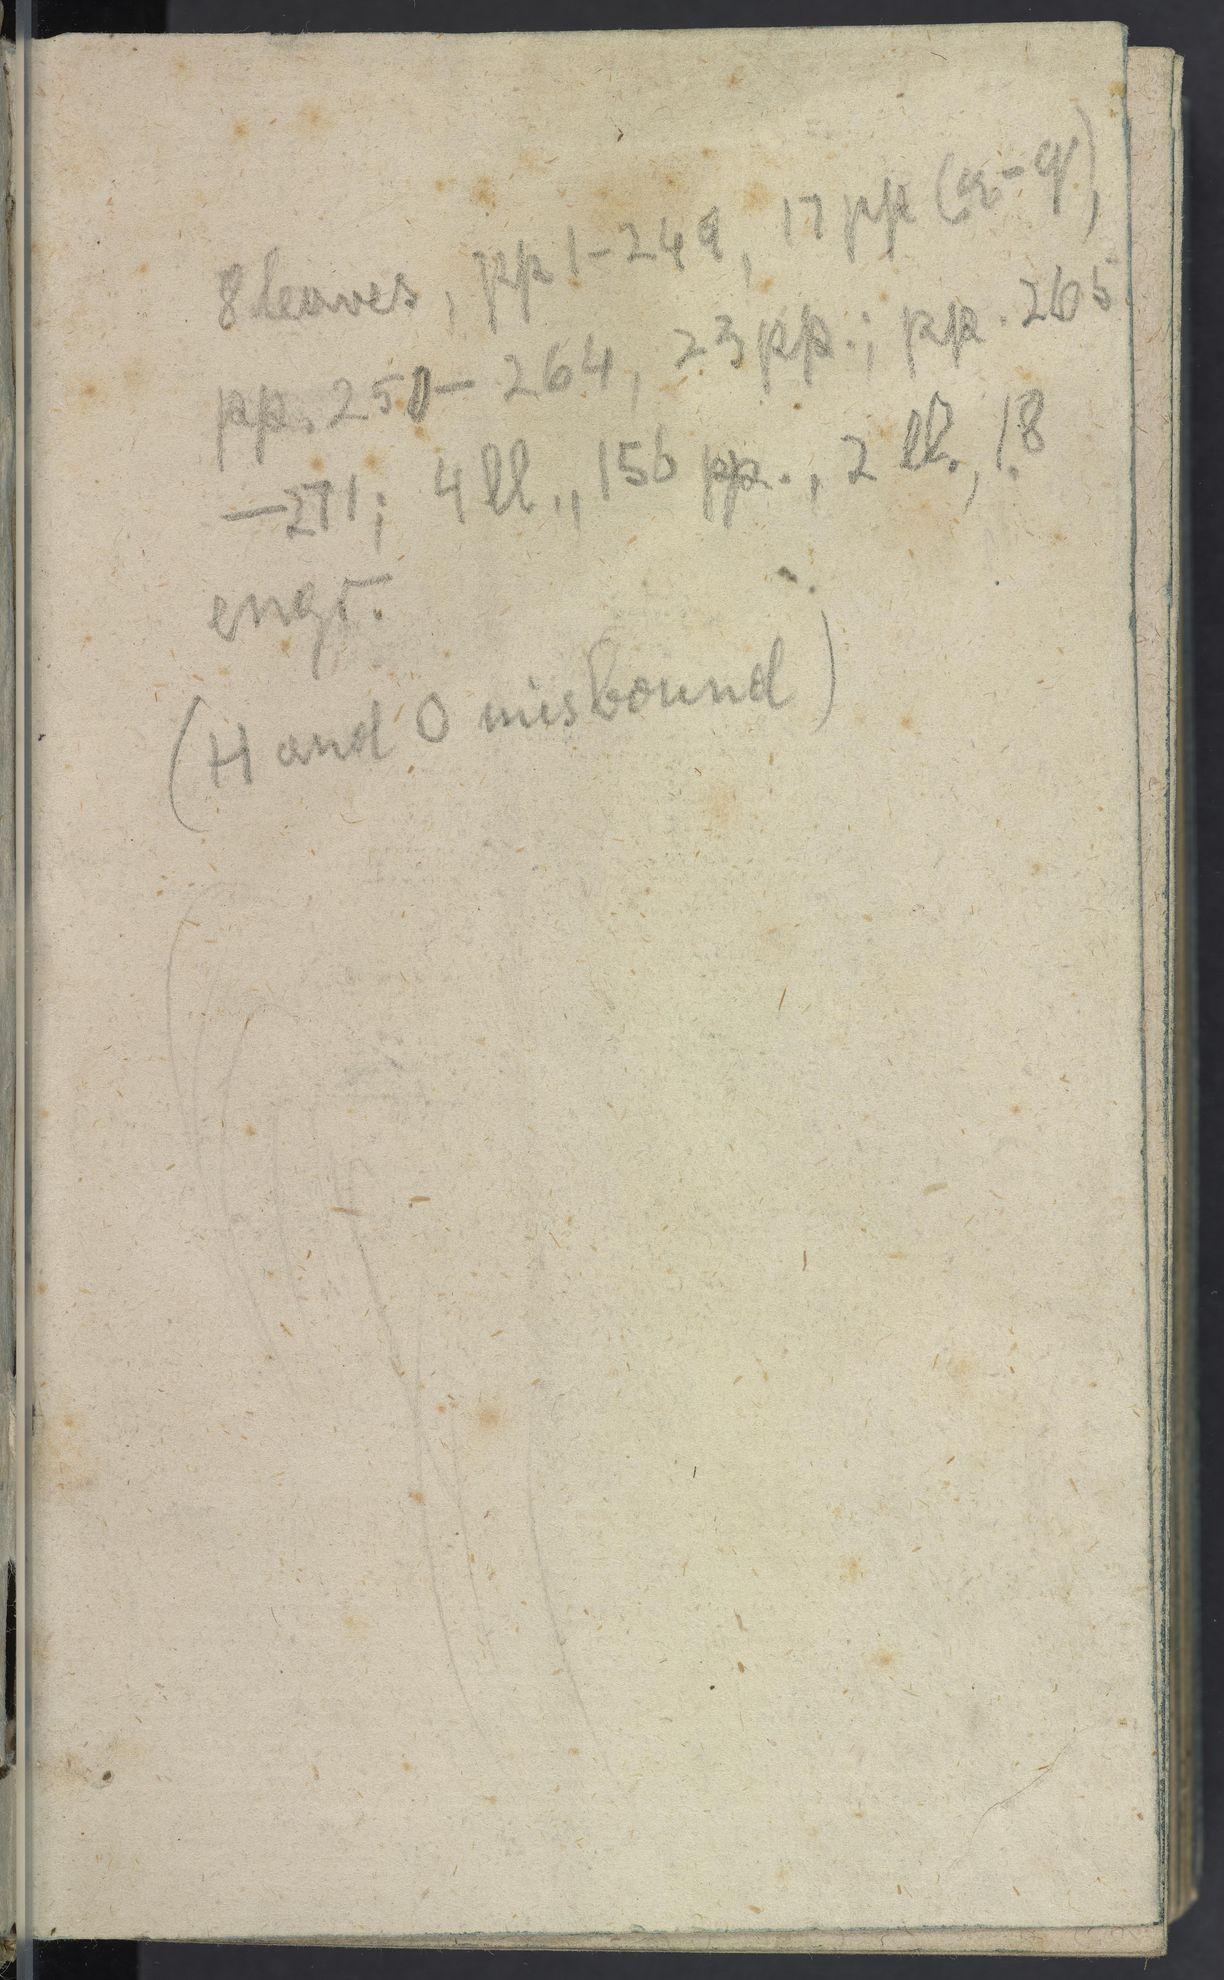 8 leaves, pp 1-249, 17 pp (a-q),
pp. 250-264, 23 pp.; pp. 265
-271; 4 ll., 156 pp., 2 ll., 18
engr.
(H and O misbound)